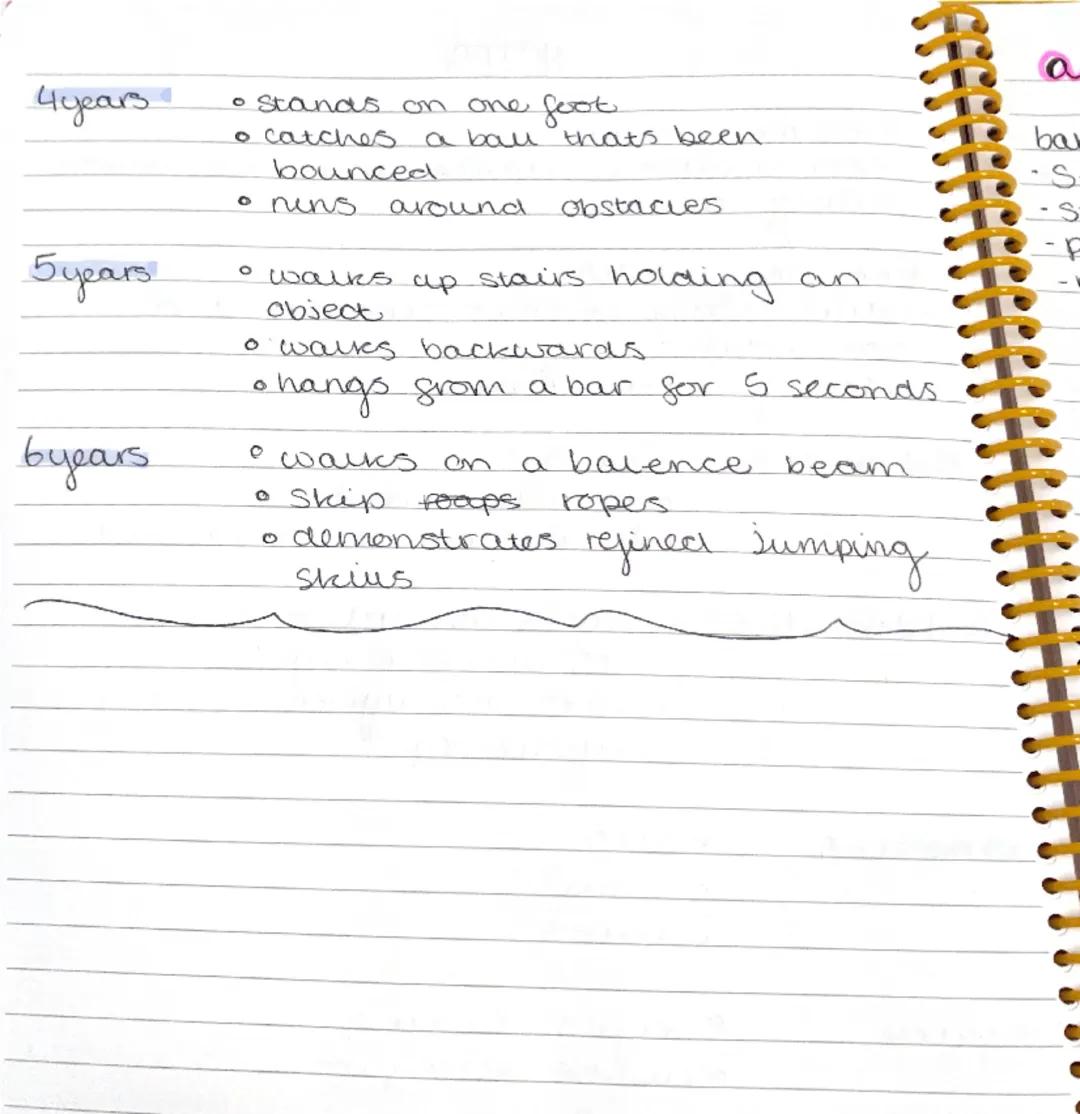 4years
• stands on one foot
• catches a ball thats been
bounced
• runs around obstacles
5years
• walks up stairs holding an
object
• walks backwards
• hangs from a bar for 5 seconds
6years
• walks on a balence beam
• skip roops ropes
• demonstrates refined jumping
skills